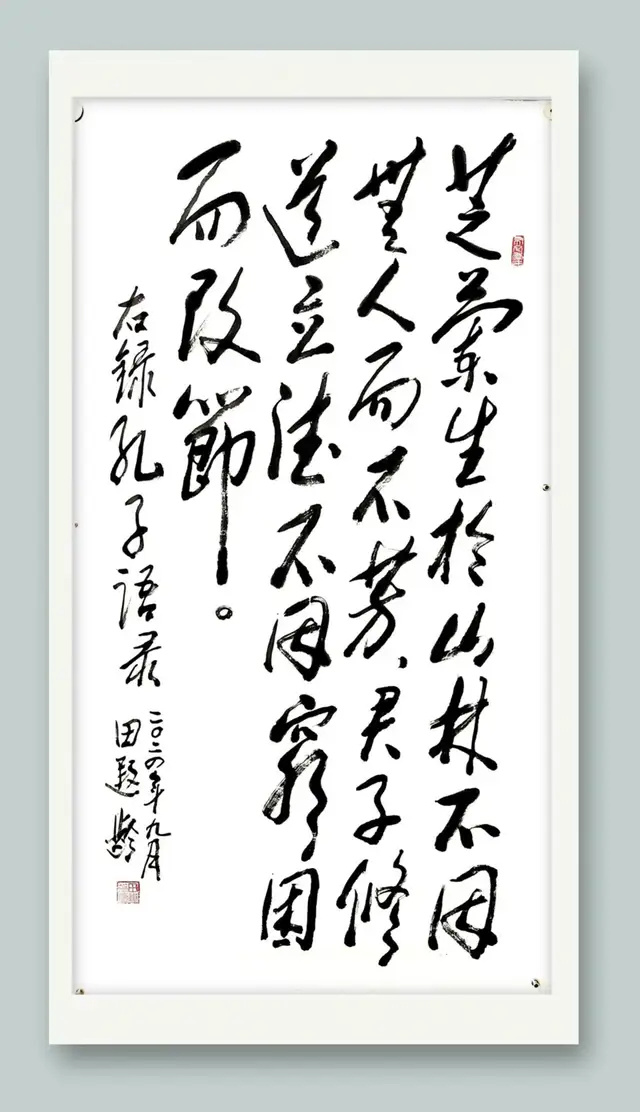 芝蘭生於山林不因
無人而不芳、君子修
道立德不因窮困
而改節。
右録孔子語录
二〇二四年九月
田遐齡